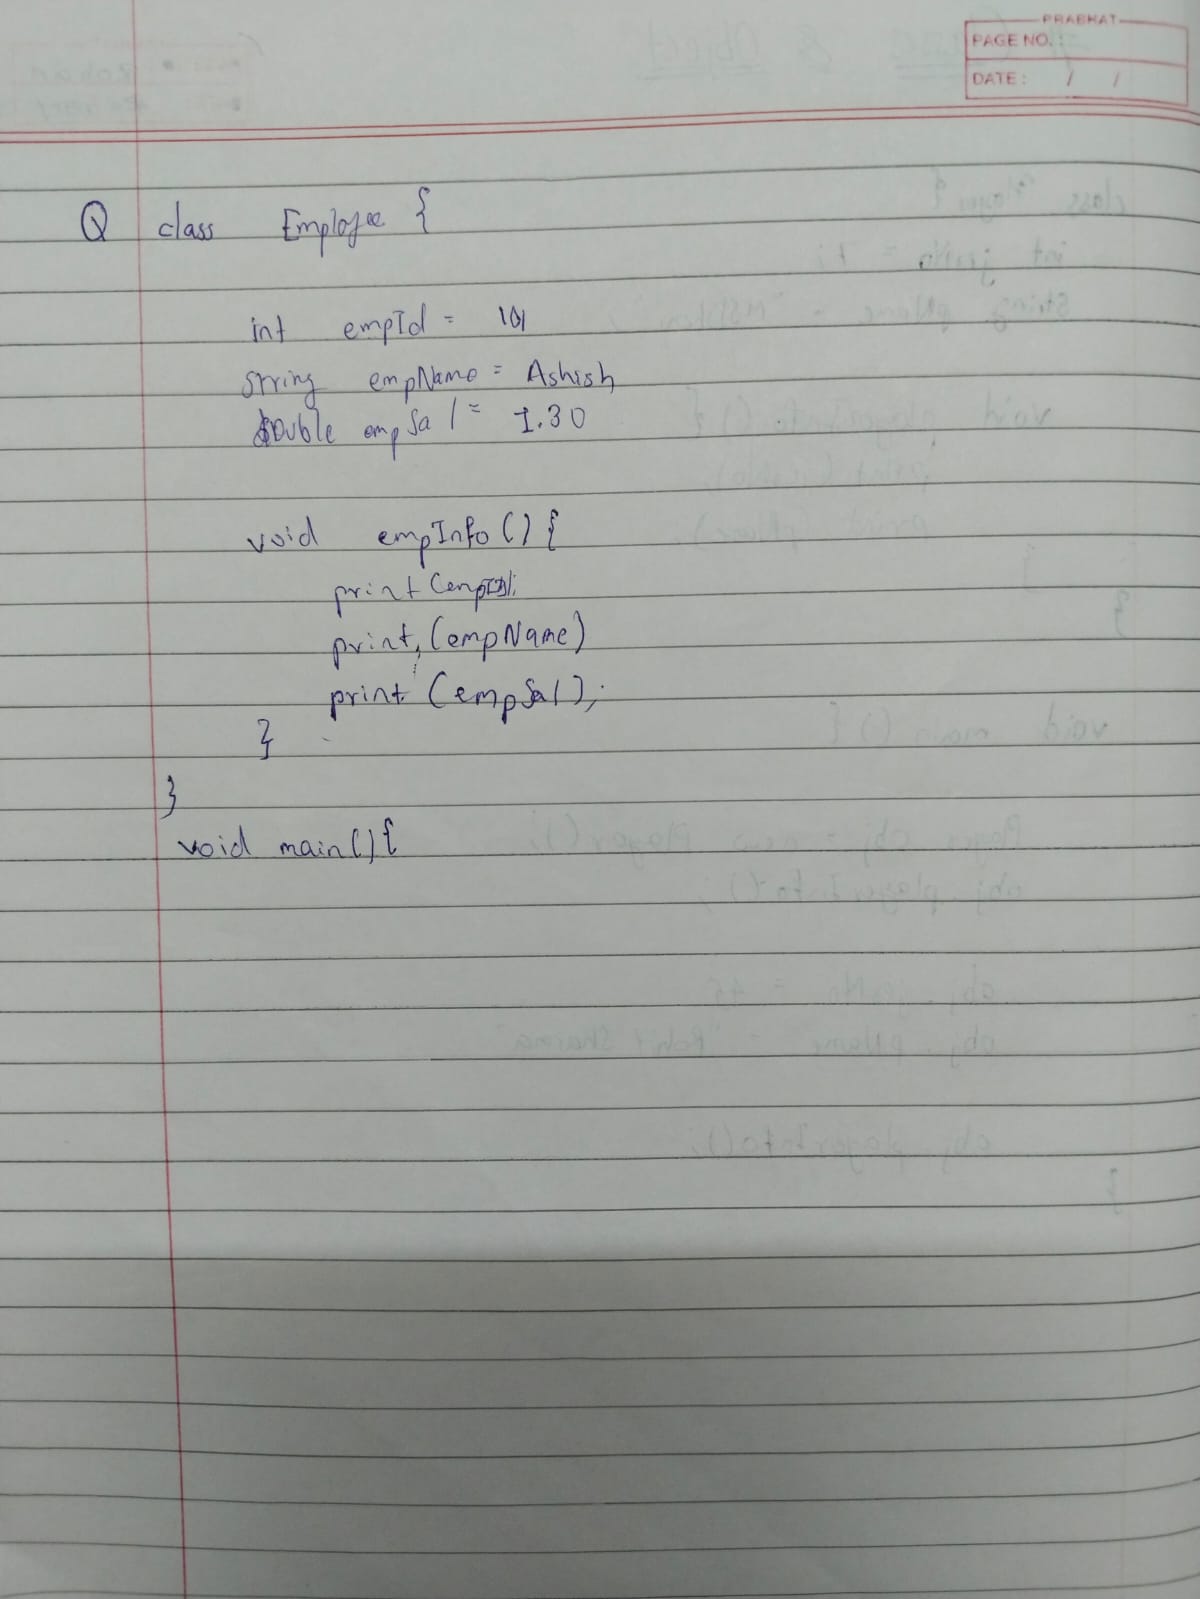 PRABHAT
PAGE NO.:
DATE: / /
Q class Employee {
int empId = 101
String empName = Ashish
Double empSal = 1.30
void empInfo () {
print (empID);
print, (empName)
print (empSal);
}
}
void main() {